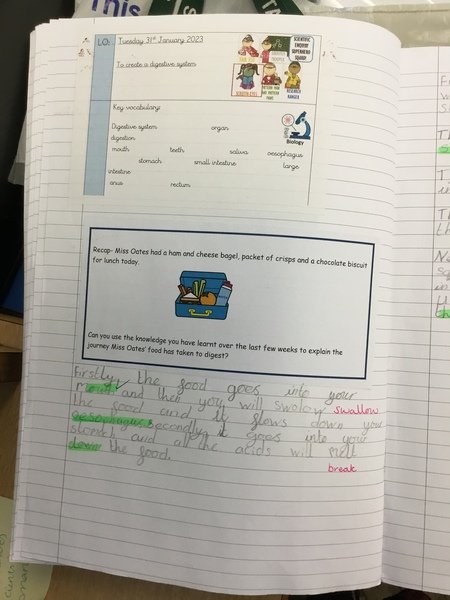 This
TA
LO:
Tuesday 31st January 2023
To create a digestive system
SCIENTIFIC
ENQUIRY
SUPERHERO
SQUAD
RESEARCH
RANGER
Key vocabulary:
Digestive system organ
digestion
mouth teeth saliva oesophagus
stomach small intestine large
intestine
anus rectum
Biology
Recap- Miss Oates had a ham and cheese bagel, packet of crisps and a chocolate biscuit
for lunch today.
Can you use the knowledge you have learnt over the last few weeks to explain the
journey Miss Oates' food has taken to digest?
Firstly, the food goes into your
mouth and then you will swolow swallow
the food and it flows down your
oesophagus. Secondly, it goes into your
and all the acids will melt
down the food. break